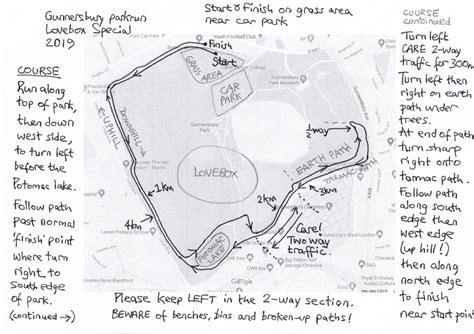 Gunnersbury parkrun
Lovebox Special
2019
Start & Finish on grass area
near car park
COURSE
Run along
top of park,
then down
west side,
to turn left
before the
Potomac lake.
Follow path
past normal
'finish' point
where turn
right, to
south edge
of park.
(continued →)
COURSE
continued
Turn left
CARE 2-way
traffic for 300m
Turn left then
right on earth
path under
trees.
At end of path
turn sharp
right onto
tarmac path.
Follow path
along south
edge then
west edge
(up hill!)
then along
north edge
to finish
near start point
Finish
Start
GRASS
AREA
CAR
PARK
Youth Football Club
Gunnersbury
Park
DOWNHILL
UPHILL
LOVEBOX
½way
EARTH PATH
TARMAC PATH
1km
2km
3km
4km
POTOMAC
LAKE
Care!
Two way
traffic.
Lionel Primary School
Mercedes-Benz Brentford
Big Yellow Self
Storage Chiswick
Fixed Cars West London
Please keep LEFT in the 2-way section.
BEWARE of benches, bins and broken-up paths!